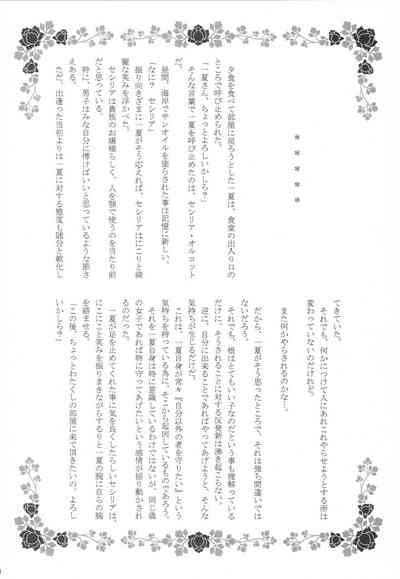 ＊　＊　＊　＊　＊
夕食を食べて部屋に戻ろうとした一夏は、食堂の出入り口の
ところで呼び止められた。
「一夏さん、ちょっとよろしいかしら？」
そんな言葉で一夏を呼び止めたのは、セシリア・オルコット
だ。
昼間、海岸でサンオイルを塗らされた事は記憶に新しい。
「なに？　セシリア」
振り向きざまに一夏がそう応えれば、セシリアはにこりと綺
麗な笑みを浮かべた。
セシリアは貴族のお嬢様らしく、人を顎で使うのを当たり前
だと思っている。
特に、男子はみな自分に傅けばいいと思っているような節さ
えある。
ただ、出逢った当初よりは一夏に対する態度も随分と軟化し
てきていた。
それでも、何かにつけて人にあれこれやらせようとする所は
変わっていないのだけれど。
また何かやらされるのかな―。
だから、一夏がそう思ったところで、それは強ち間違いでは
ないだろう。
それでも、根はとてもいい子なのだという事も理解している
だけに、そうされることに対する反発新は沸き起こらない。
逆に、自分に出来ることであればやってあげようと、そんな
気持ちが生じるだけだ。
これは、一夏自身が常々『自分以外の者を守りたい』という
気持ちを持っている為に、そこから起因しているものだろう。
それを一夏自身は特に意識しているわけではないが、同じ歳
の女子であれば特に守ってあげたいという感情が揺り動かされ
るのだった。
一夏が足を止めてくれた事に気を良くしたらしいセシリアは、
にこにこと笑みを振りまきながらするりと一夏の腕に自らの腕
を絡ませる。
「この後、ちょっとわたくしの部屋に来て頂きたいの。よろし
いかしら？」